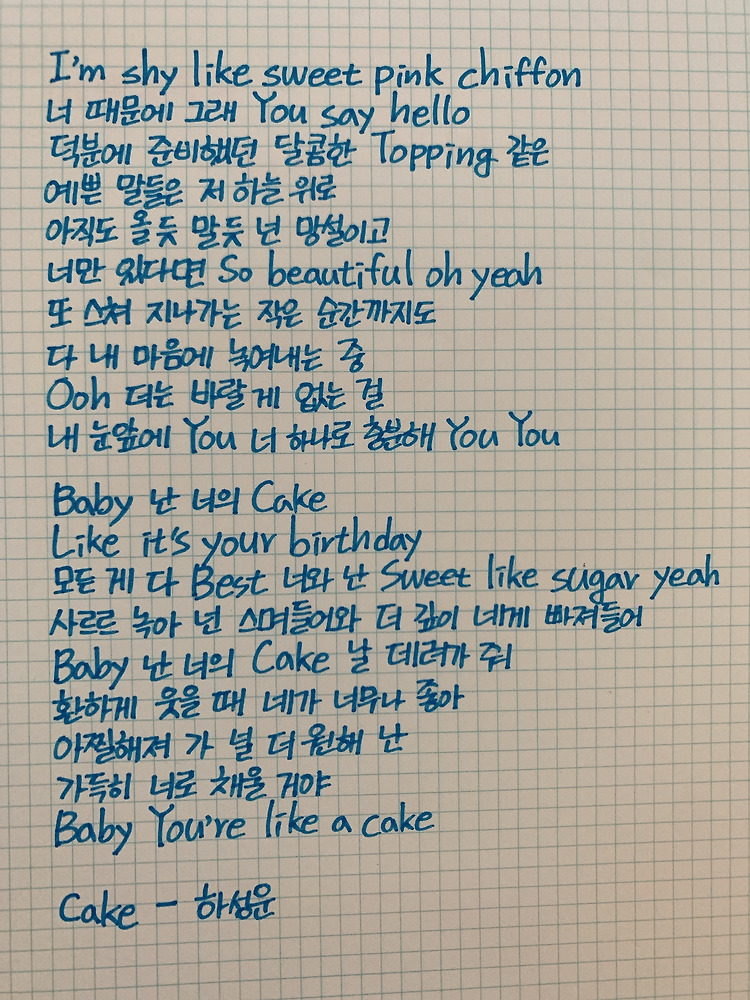 I'm shy like sweet pink chiffon
너 때문에 그래 You say hello
덕분에 준비했던 달콤한 Topping 같은
예쁜 말들은 저 하늘 위로
아직도 올듯 말듯 넌 망설이고
너만 있다면 So beautiful oh yeah
또 스쳐 지나가는 작은 순간까지도
다 내 마음에 녹여내는 중
Ooh 더는 바랄 게 없는 걸
내 눈앞에 You 너 하나로 충분해 You You
Baby 난 너의 Cake
Like it's your birthday
모든 게 다 Best 너와 난 Sweet like sugar yeah
사르르 녹아 넌 스며들어와 더 깊이 네게 빠져들어
Baby 난 너의 Cake 날 데려가 줘
환하게 웃을 때 네가 너무나 좋아
아찔해져 가 널 더 원해 난
가득히 너로 채울 거야
Baby You're like a cake
Cake - 하성운